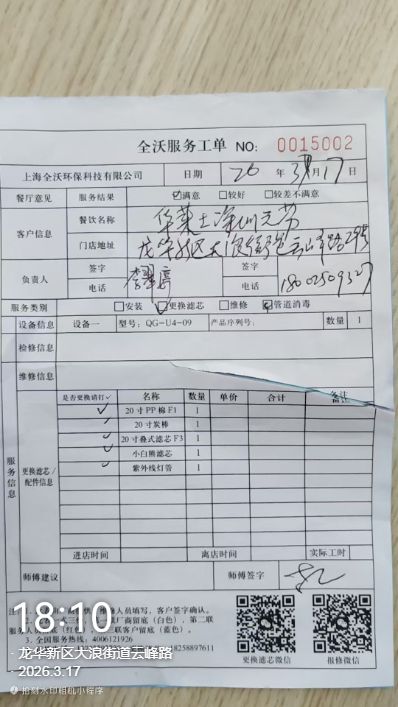 全沃服务工单 NO: 0015002
上海全沃环保科技有限公司 日期 26 年 3 月 17 日
餐厅意见 服务结果 ☑满意 □较好 □较差不满意
客户信息 餐饮名称 华莱士深圳元芬
门店地址 龙华新区大浪街道云峰路
负责人 签字 签字
电话 电话
服务类别 □安装 ☑更换滤芯 □维修 ☑管道消毒
设备信息 设备一 型号: QG-U4-09 产品序列号: 数量 1
检修信息
维修信息
服务信息 更换滤芯/配件信息
是否更换请打✓ 名称 数量 单价 合计 备注
✓ 20寸PP棉F1 1
✓ 20寸炭棒 1
✓ 20寸叠式滤芯F3 1
✓ 小白熊滤芯 1
✓ 紫外线灯管 1
进店时间 离店时间 实际工时
师傅建议 师傅签字
维修人员填写,客户签字确认。
厂商留底(白色),第二联
客户留底(蓝色)。
3.全国服务热线: 4006121926
18258897611
更换滤芯微信 报修微信
18:10
龙华新区大浪街道云峰路
2026.3.17
抢财水印相机小程序